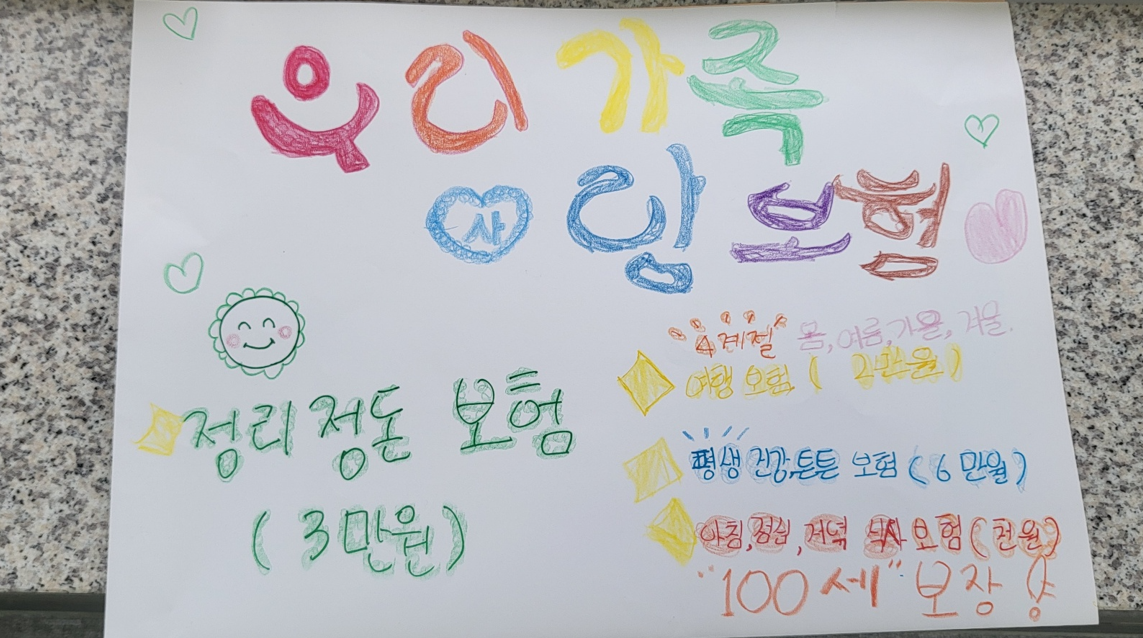 우리 가족
사랑 보험
4계절 봄, 여름, 가을, 겨울.
여행 보험 ( 2만원 )
정리정돈 보험
( 3만원 )
평생 건강,튼튼 보험 ( 6만원 )
아침, 점심, 저녁 식사 보험 ( 천원 )
"100세" 보장 !